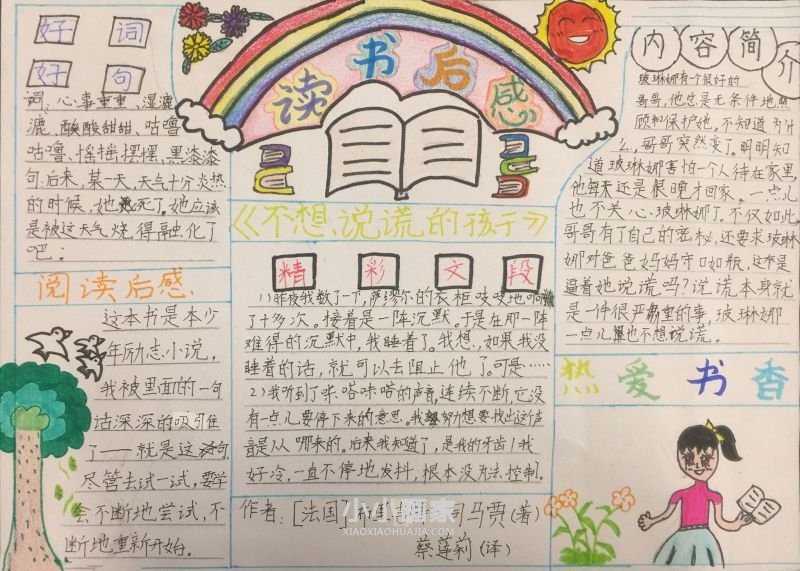 好词
好句
词:心事重重、湿漉
漉、酸酸甜甜、咕噜
咕噜、摇摇摆摆、黑漆漆
句:后来,某一天,天气十分炎热
的时候,她死了。她应该
是被这天气烧得融化了
吧!
阅读后感
这本书是本少
年励志小说,
我被里面的一句
话深深的吸引住
了——就是这句
尽管去试一试,要学
会不断地尝试,不
断地重新开始。
读书后感
《不想说谎的孩子》
精彩文段
1)昨夜我数了一下,萨缪尔的衣柜吱吱地响
了十多次。接着是一阵沉默。于是在那一阵
难得的沉默中,我睡着了。我想,如果我没
睡着的话,就可以去阻止他了。可是……
2)我听到了咔嗒咔嗒的声音,连续不断,它没
有一点儿要停下来的意思。我努力想要找出这个声
音是从哪来的。后来我知道了,是我的牙齿!我
好冷,一直不停地发抖,根本没办法控制。
作者:[法国]司马贾(著)
蔡莲莉(译)
小小画家
XIAOXIAOHUAJIA.COM
内容简介
玻琳娜有个很好的
哥哥,他总是无条件地照
顾和保护她,不知道为什
么,哥哥突然变了。明明知
道玻琳娜害怕一个人待在家里,
他每天还是很晚才回家,一点儿
也不关心玻琳娜了。不仅如此,
哥哥有了自己的密秘,还要求玻琳
娜对爸爸妈妈守口如瓶,这不是
逼着她说谎吗?说谎本身就
是一件很严重的事,玻琳娜
一点儿也不想说谎。
热爱书香